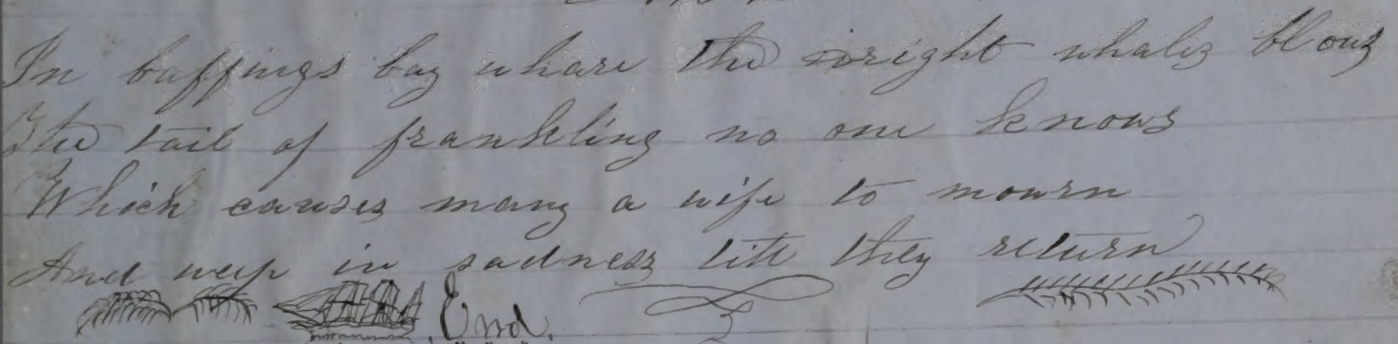 In buffings bay whare the right whales blows
The tail of frankling no one knows
Which causes many a wife to mourn
And weep in sadness till they return
End.